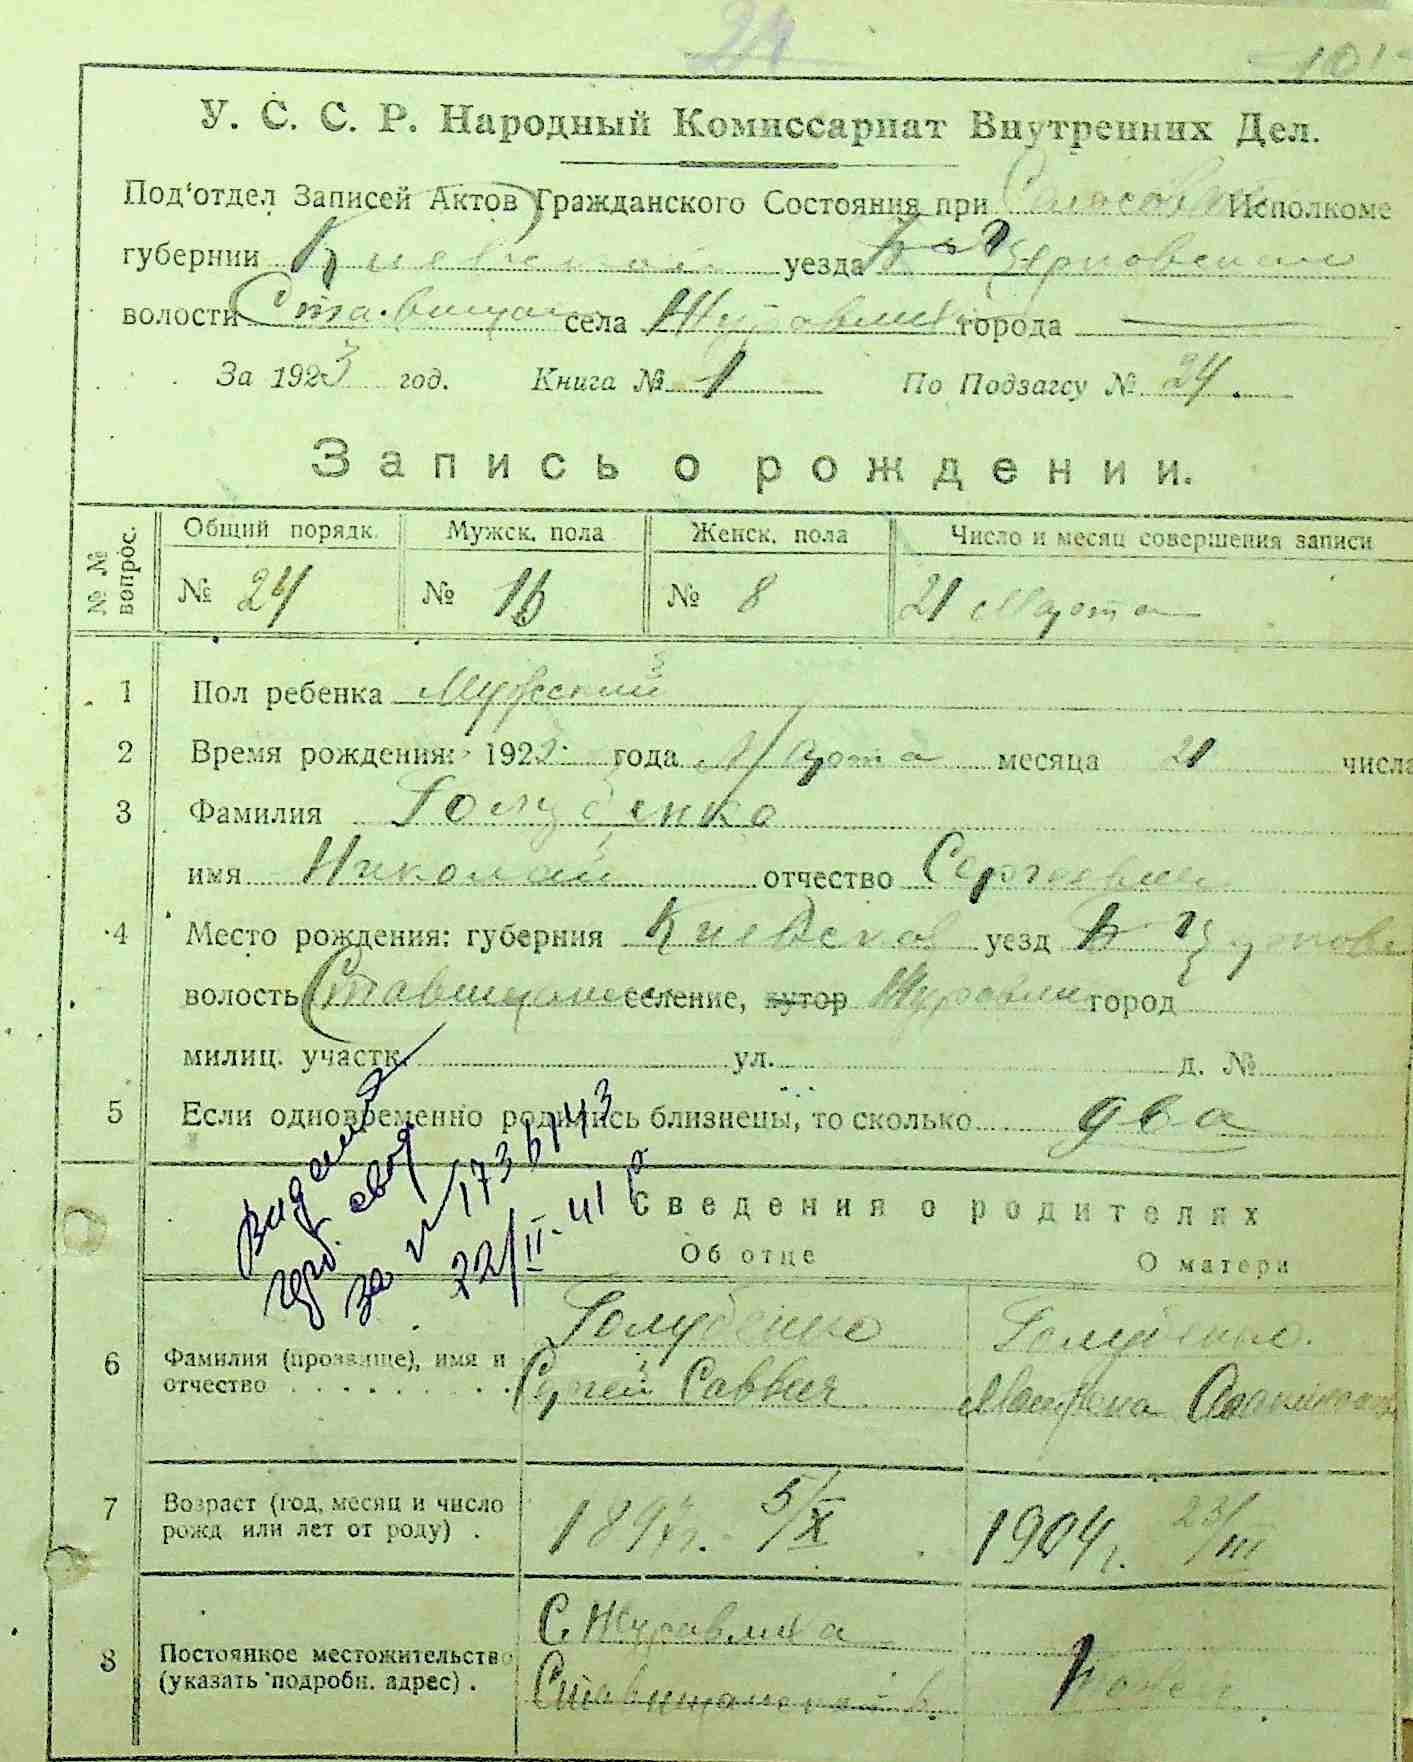 24
У. С. С. Р. Народный Комиссариат Внутренних Дел.
Под'отдел Записей Актов Гражданского Состояния при Исполкоме
губернии Киевской уезда Б Церковского
волости Ставищан села Журавлиха города —
За 1923 год. Книга № 1 По Подзагсу № 24.
Запись о рождении.
№ № вопрос. Общий порядк. Мужск. пола Женск. пола Число и месяц совершения записи
№ 24 № 16 № 8 21 Марта
1 Пол ребенка Мужской
2 Время рождения: 1923 года Марта месяца 21 числа
3 Фамилия Голубенко
имя Николай отчество Сергеевич
4 Место рождения: губерния Киевская уезд Б Церковс
волость Ставищанс селение, хутор Журавлих город
милиц. участк. ул. д. №
5 Если одновременно родились близнецы, то сколько два
Сведения о родителях
Об отце О матери
Видемий
свд
за № 1736/43
22/II-41 р
6 Фамилия (прозвище), имя и отчество Голубенко Голубенко.
Сергей Саввич Матрена
7 Возраст (год, месяц и число рожд или лет от роду) . 5/X 1904 г. 23/III
8 Постоянное местожительство (указать подробн. адрес) . С. Журавлиха
Ставищанской в. Тоже